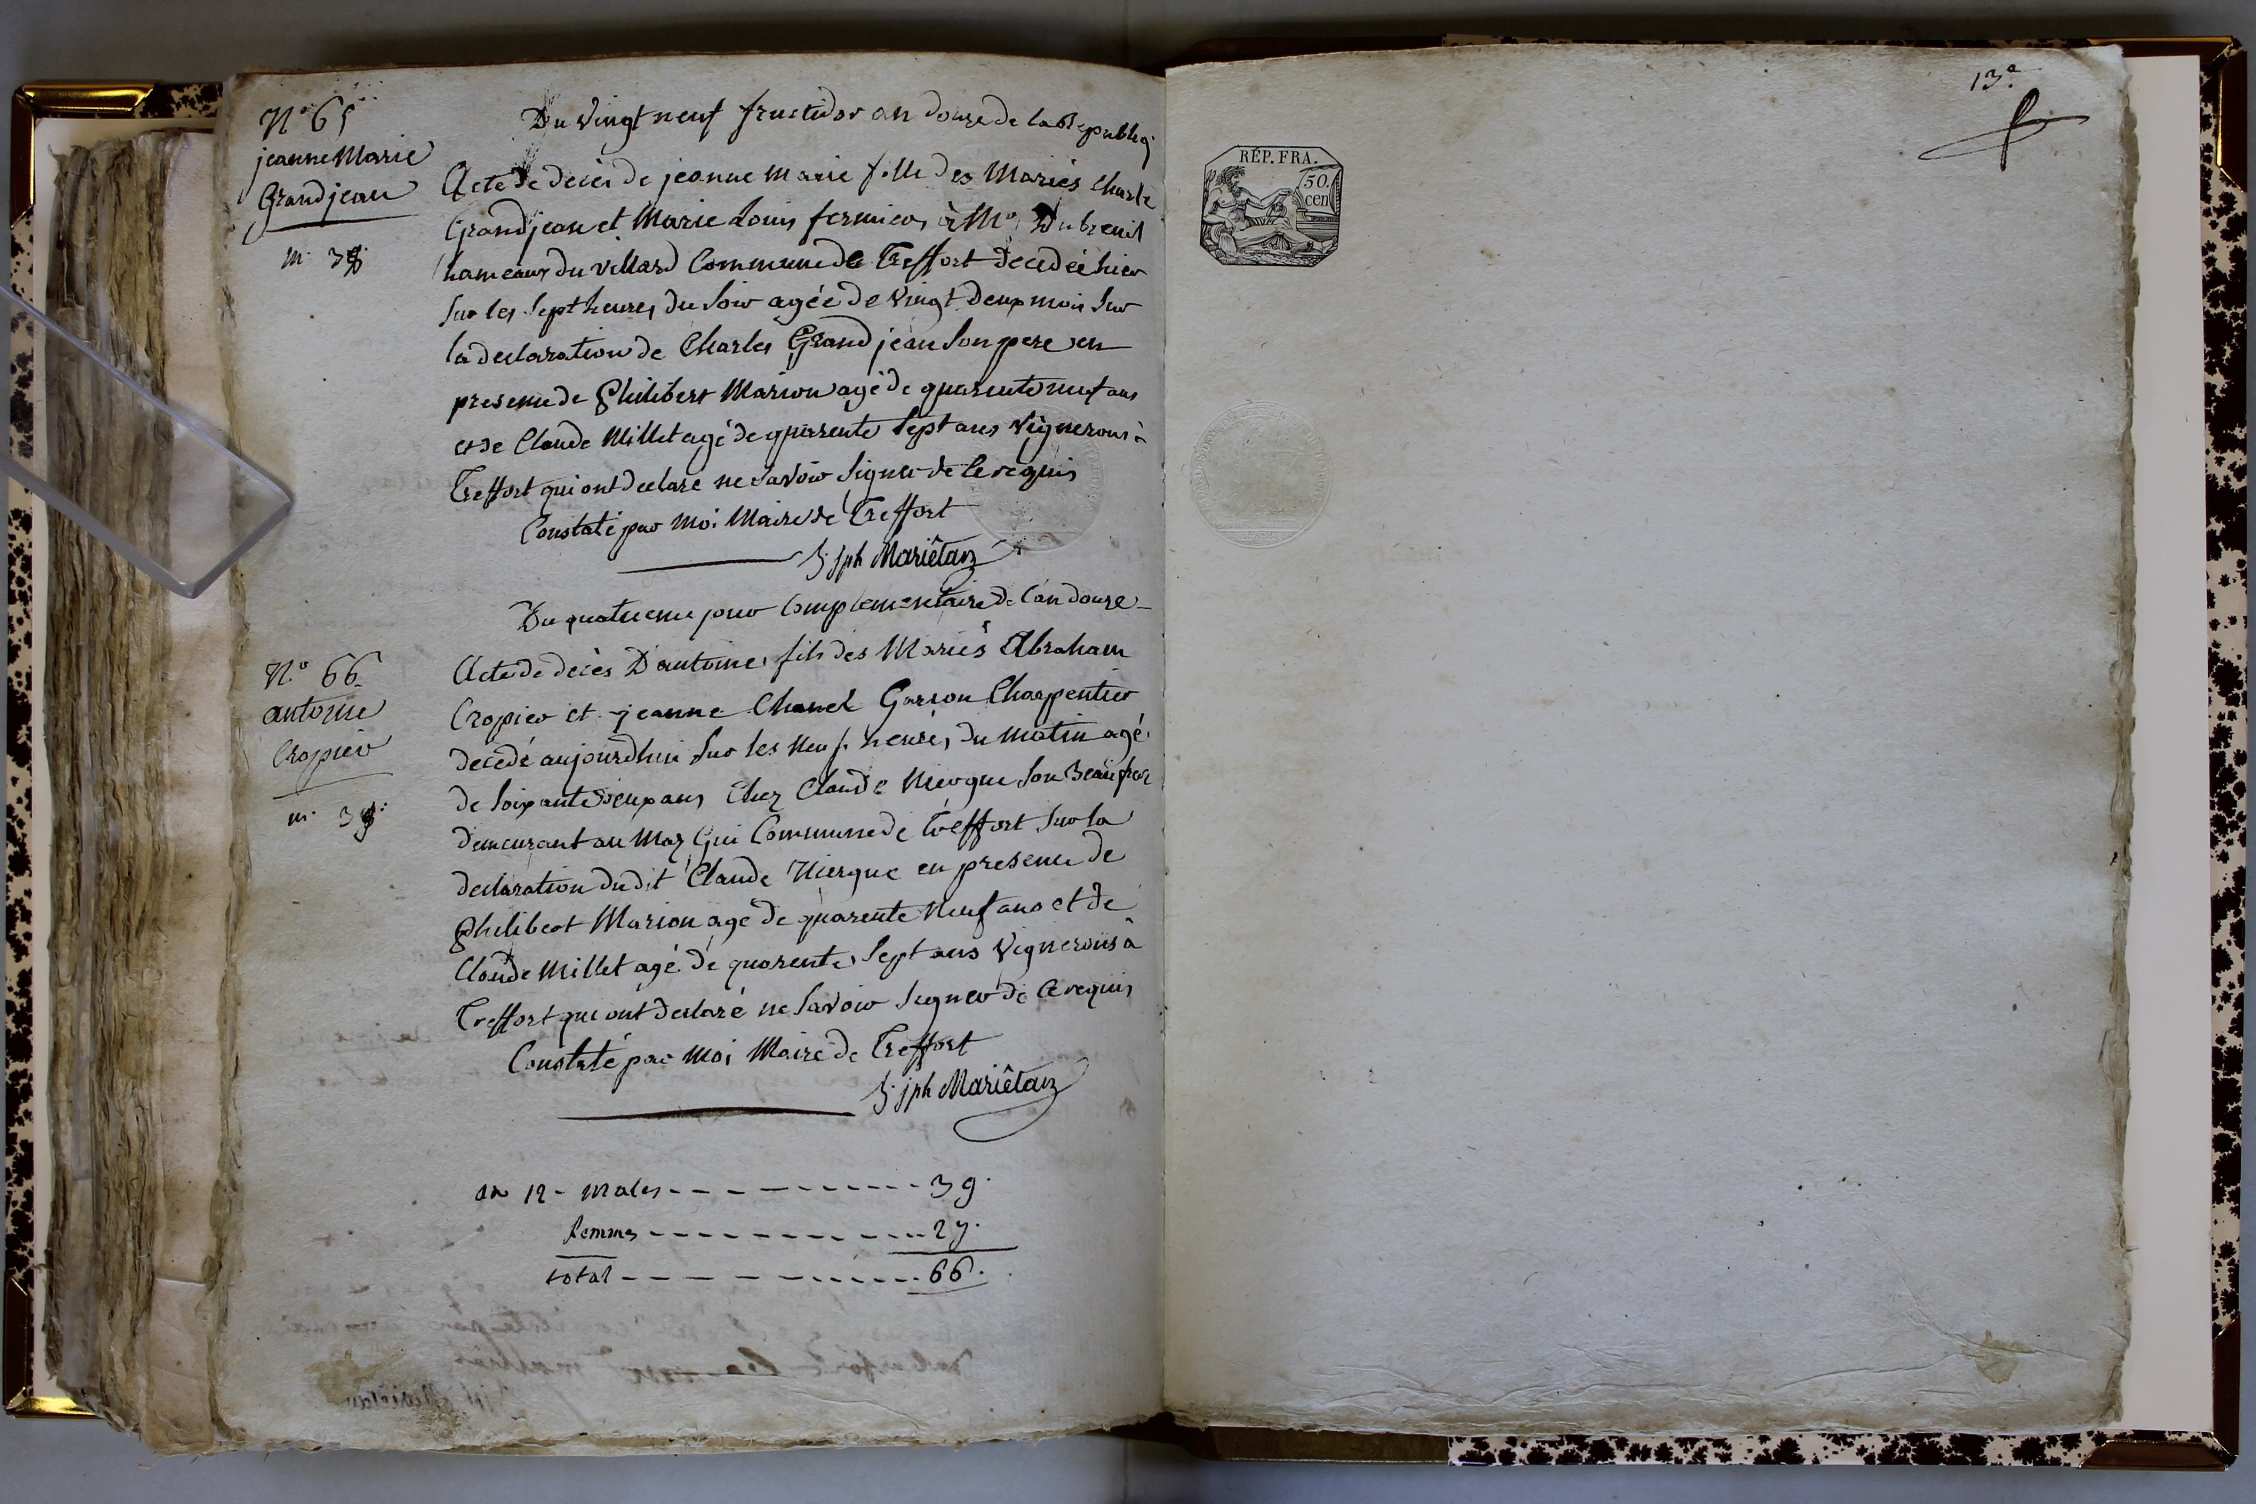 N.º 65
jeanne Marie
Grandjean
m. 38.
Du vingt neuf fructidor an douze de la Republiq
Acte de decès de jeanne marie fille des Mariés Charle
Grandjean et Marie Louis fermiers à Mr Dubreuil
hameaux du villard Commune de Treffort decedeé hier
sur les sept heures du soir agée de vingt deux mois sur
la declaration de Charles Grandjean son pere en
presence de Philibert Marion agé de quarente neuf ans
et de Claude Millet agé de quarrente sept ans vignerons à
Treffort qui ont declaré ne savoir signer de ce requis
Constaté par moi Maire de Treffort
jph Mariêtan
N.º 66
antoine
Cropier
m. 39.
Du quatrieme jour Complementaire de l'an douze
Acte de decès D'antoine fils des Mariés Abraham
Cropier et jeanne Chanel Garson Charpentier
decedé aujourdhui sur les neuf heures du matin agé
de soixante deux ans chez Claude Niergue son Beau frere
demeurant au Maz Gui Commune de Treffort sur la
declaration dudit Claude Niergue en presence de
Philibert Marion age de quarente neuf ans et de
Claude Millet agé de quarente sept ans Vignerons à
Treffort qui ont declaré ne savoir signer de ce requis
Constaté par moi Maire de Treffort
jph Mariêtan
an 12 - males - - - - - - - - - - 39.
femmes - - - - - - - - - - 27.
total - - - - - - - - - - 66.
13.e
RÉP. FRA.
50.
cen